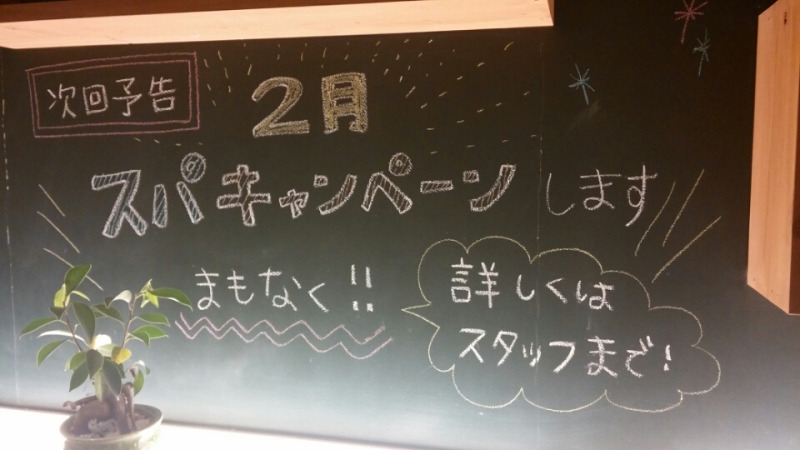 次回予告
2月
スパキャンペーンします
まもなく!!
詳しくは
スタッフまで!